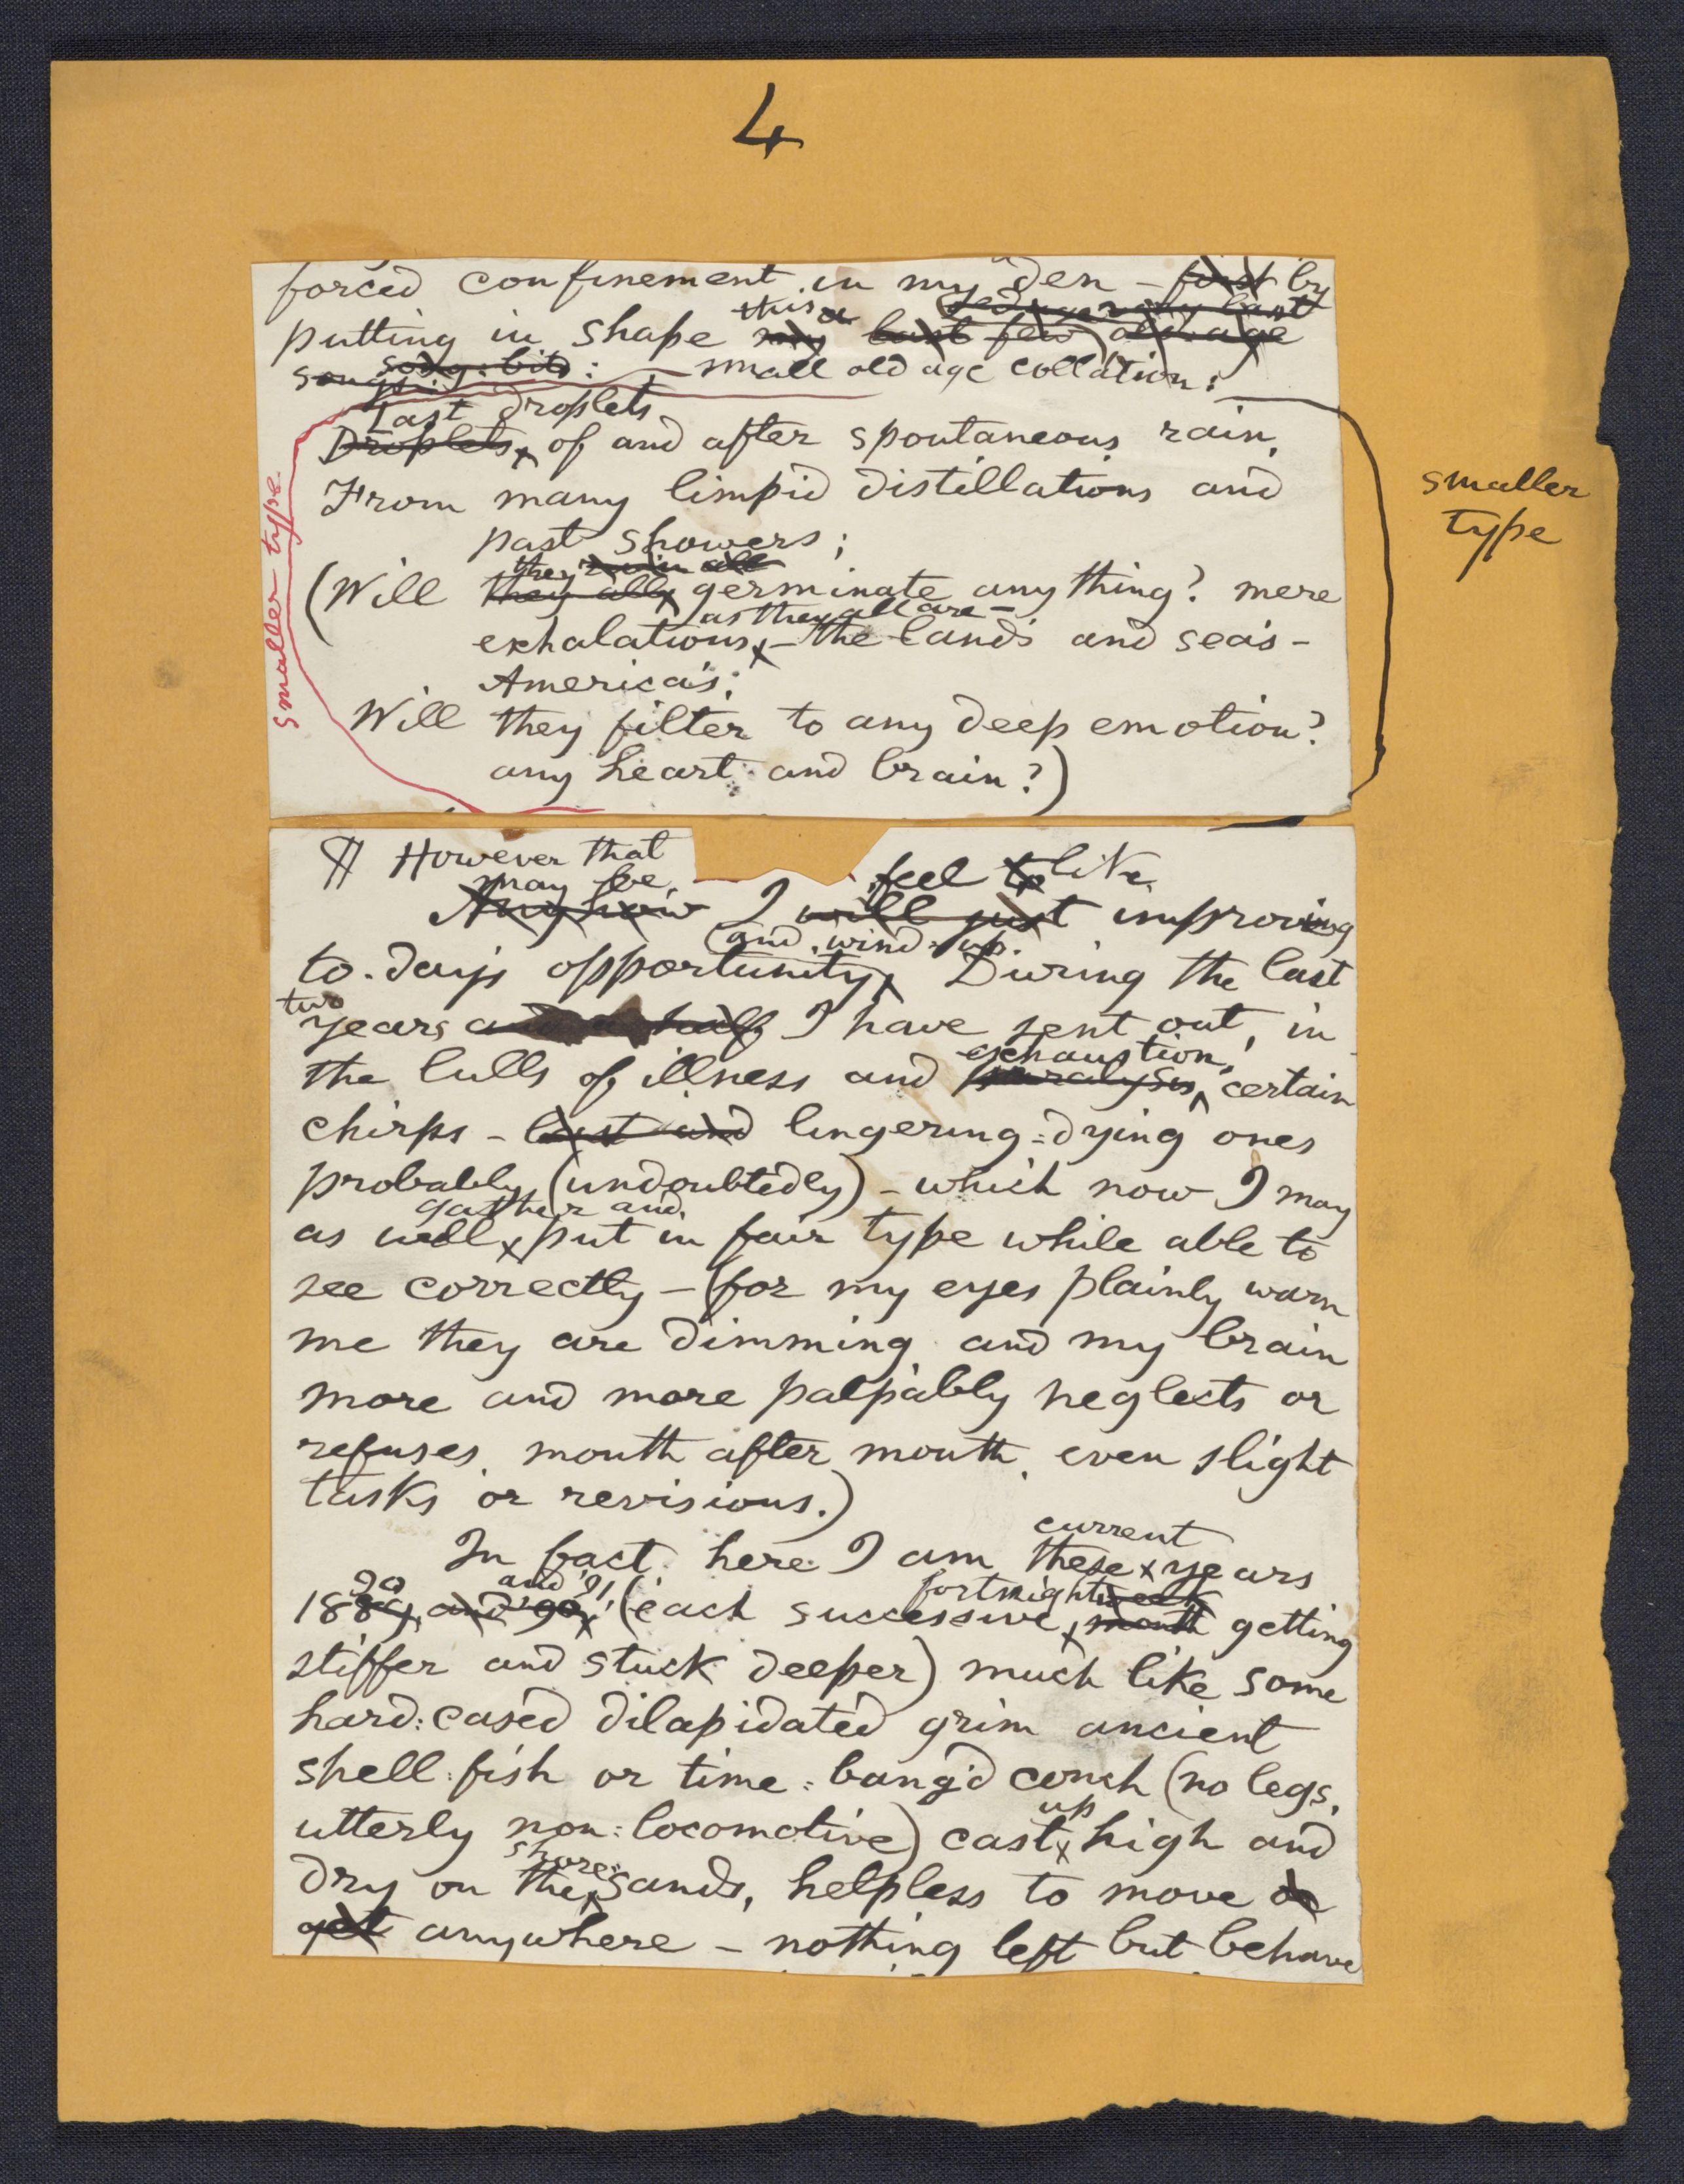 4
forced confinement in my den - first by
this a
putting in shape my last few old age
song-bits: - small old age collation:
songs:
Last droplets
Droplets, of and after spontaneous rain,
From many limpid distillations and
past showers;
they
(Will they all germinate anything? mere
as they all are -
exhalations, - the land's and sea's -
America's;
Will they filter to any deep emotion?
any heart and brain?)
smaller type
smaller
type
¶ However that
may be, feel to like
Anyhow I will just improving
(and wind-up.
to-day's opportunity, During the last
two
years and a half I have sent out, in
exhaustion,
the lulls of illness and paralysis, certain
chirps - last and lingering-dying ones
probably, (undoubtedly) - which now I may
gather and
as well put in fair type while able to
see correctly - (for my eyes plainly warn
me they are dimming and my brain
more and more palpably neglects or
refuses, month after month, even slight
tasks or revisions.)
current
In fact, here I am these years
90 and '91, fortnight week
1889, and '90, (each successive month getting
stiffer and stuck deeper) much like some
hard-cased dilapidated grim ancient
shell-fish or time-bang'd conch (no legs,
up
utterly non-locomotive) cast high and
shore-
dry on the sands, helpless to move or
get anywhere - nothing left but behave